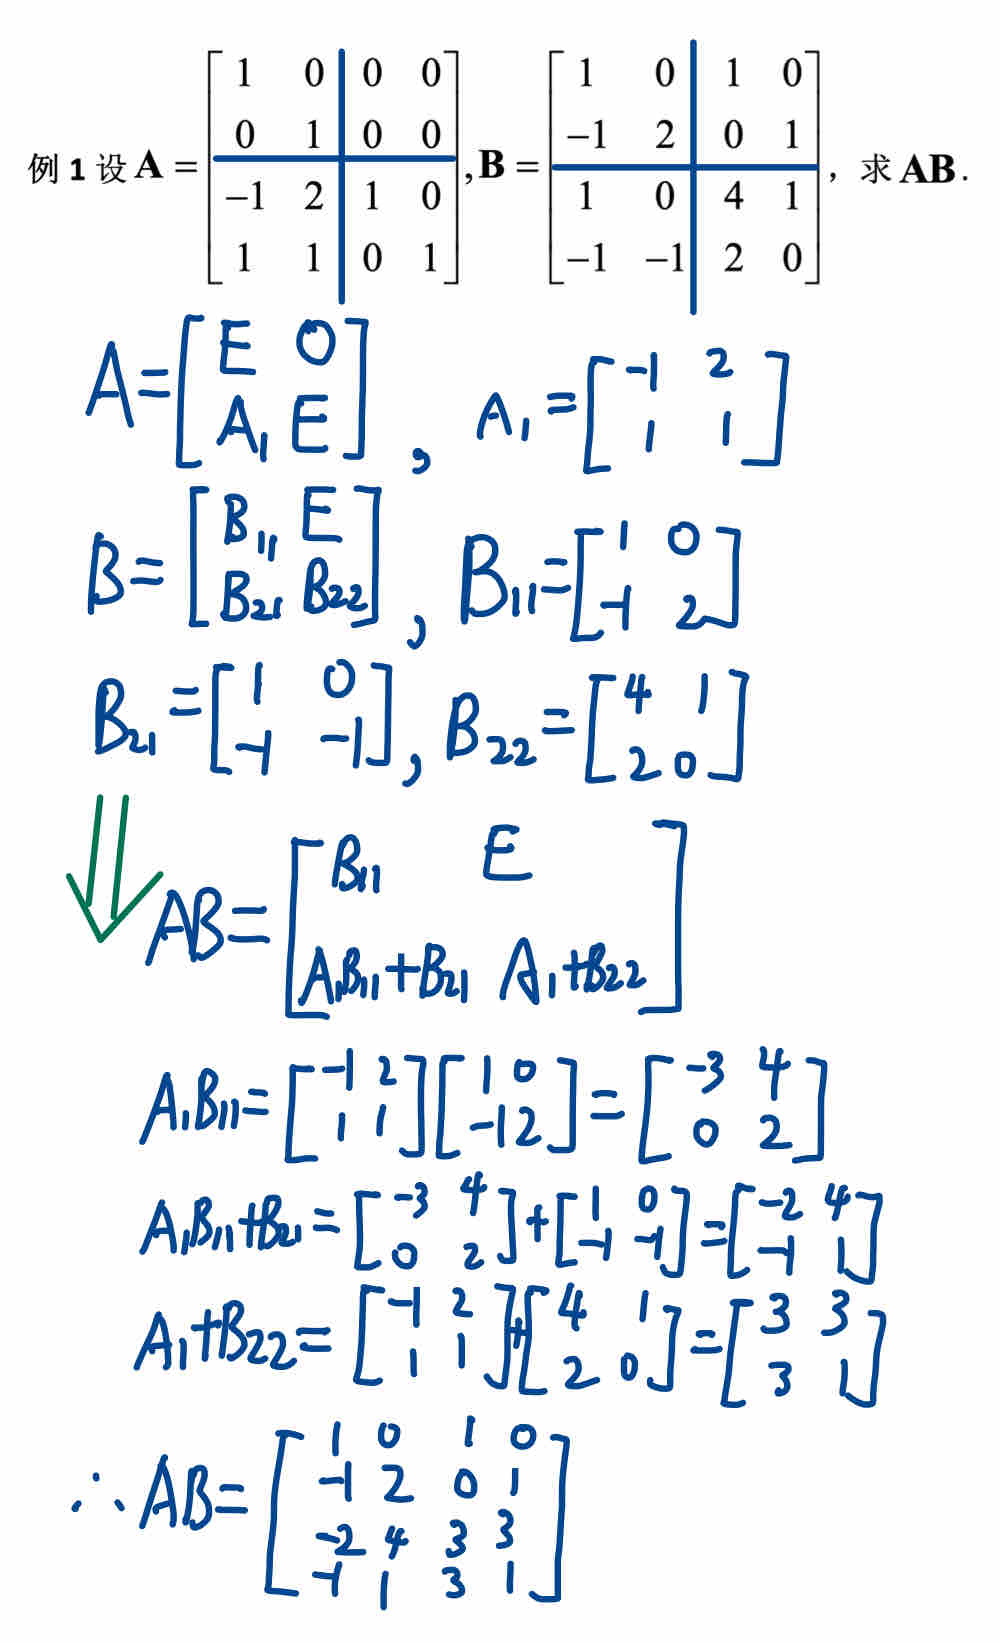 例 1 设 A = [1 0 0 0; 0 1 0 0; −1 2 1 0; 1 1 0 1], B = [1 0 1 0; −1 2 0 1; 1 0 4 1; −1 −1 2 0], 求 AB.
A = [E O; A₁ E], A₁ = [-1 2; 1 1]
B = [B₁₁ E; B₂₁ B₂₂], B₁₁ = [1 0; -1 2]
B₂₁ = [1 0; -1 -1], B₂₂ = [4 1; 2 0]
⇓ AB = [B₁₁ E; A₁B₁₁+B₂₁ A₁+B₂₂]
A₁B₁₁ = [-1 2; 1 1] [1 0; -1 2] = [-3 4; 0 2]
A₁B₁₁+B₂₁ = [-3 4; 0 2] + [1 0; -1 -1] = [-2 4; -1 1]
A₁+B₂₂ = [-1 2; 1 1] + [4 1; 2 0] = [3 3; 3 1]
∴ AB = [1 0 1 0; -1 2 0 1; -2 4 3 3; -1 1 3 1]